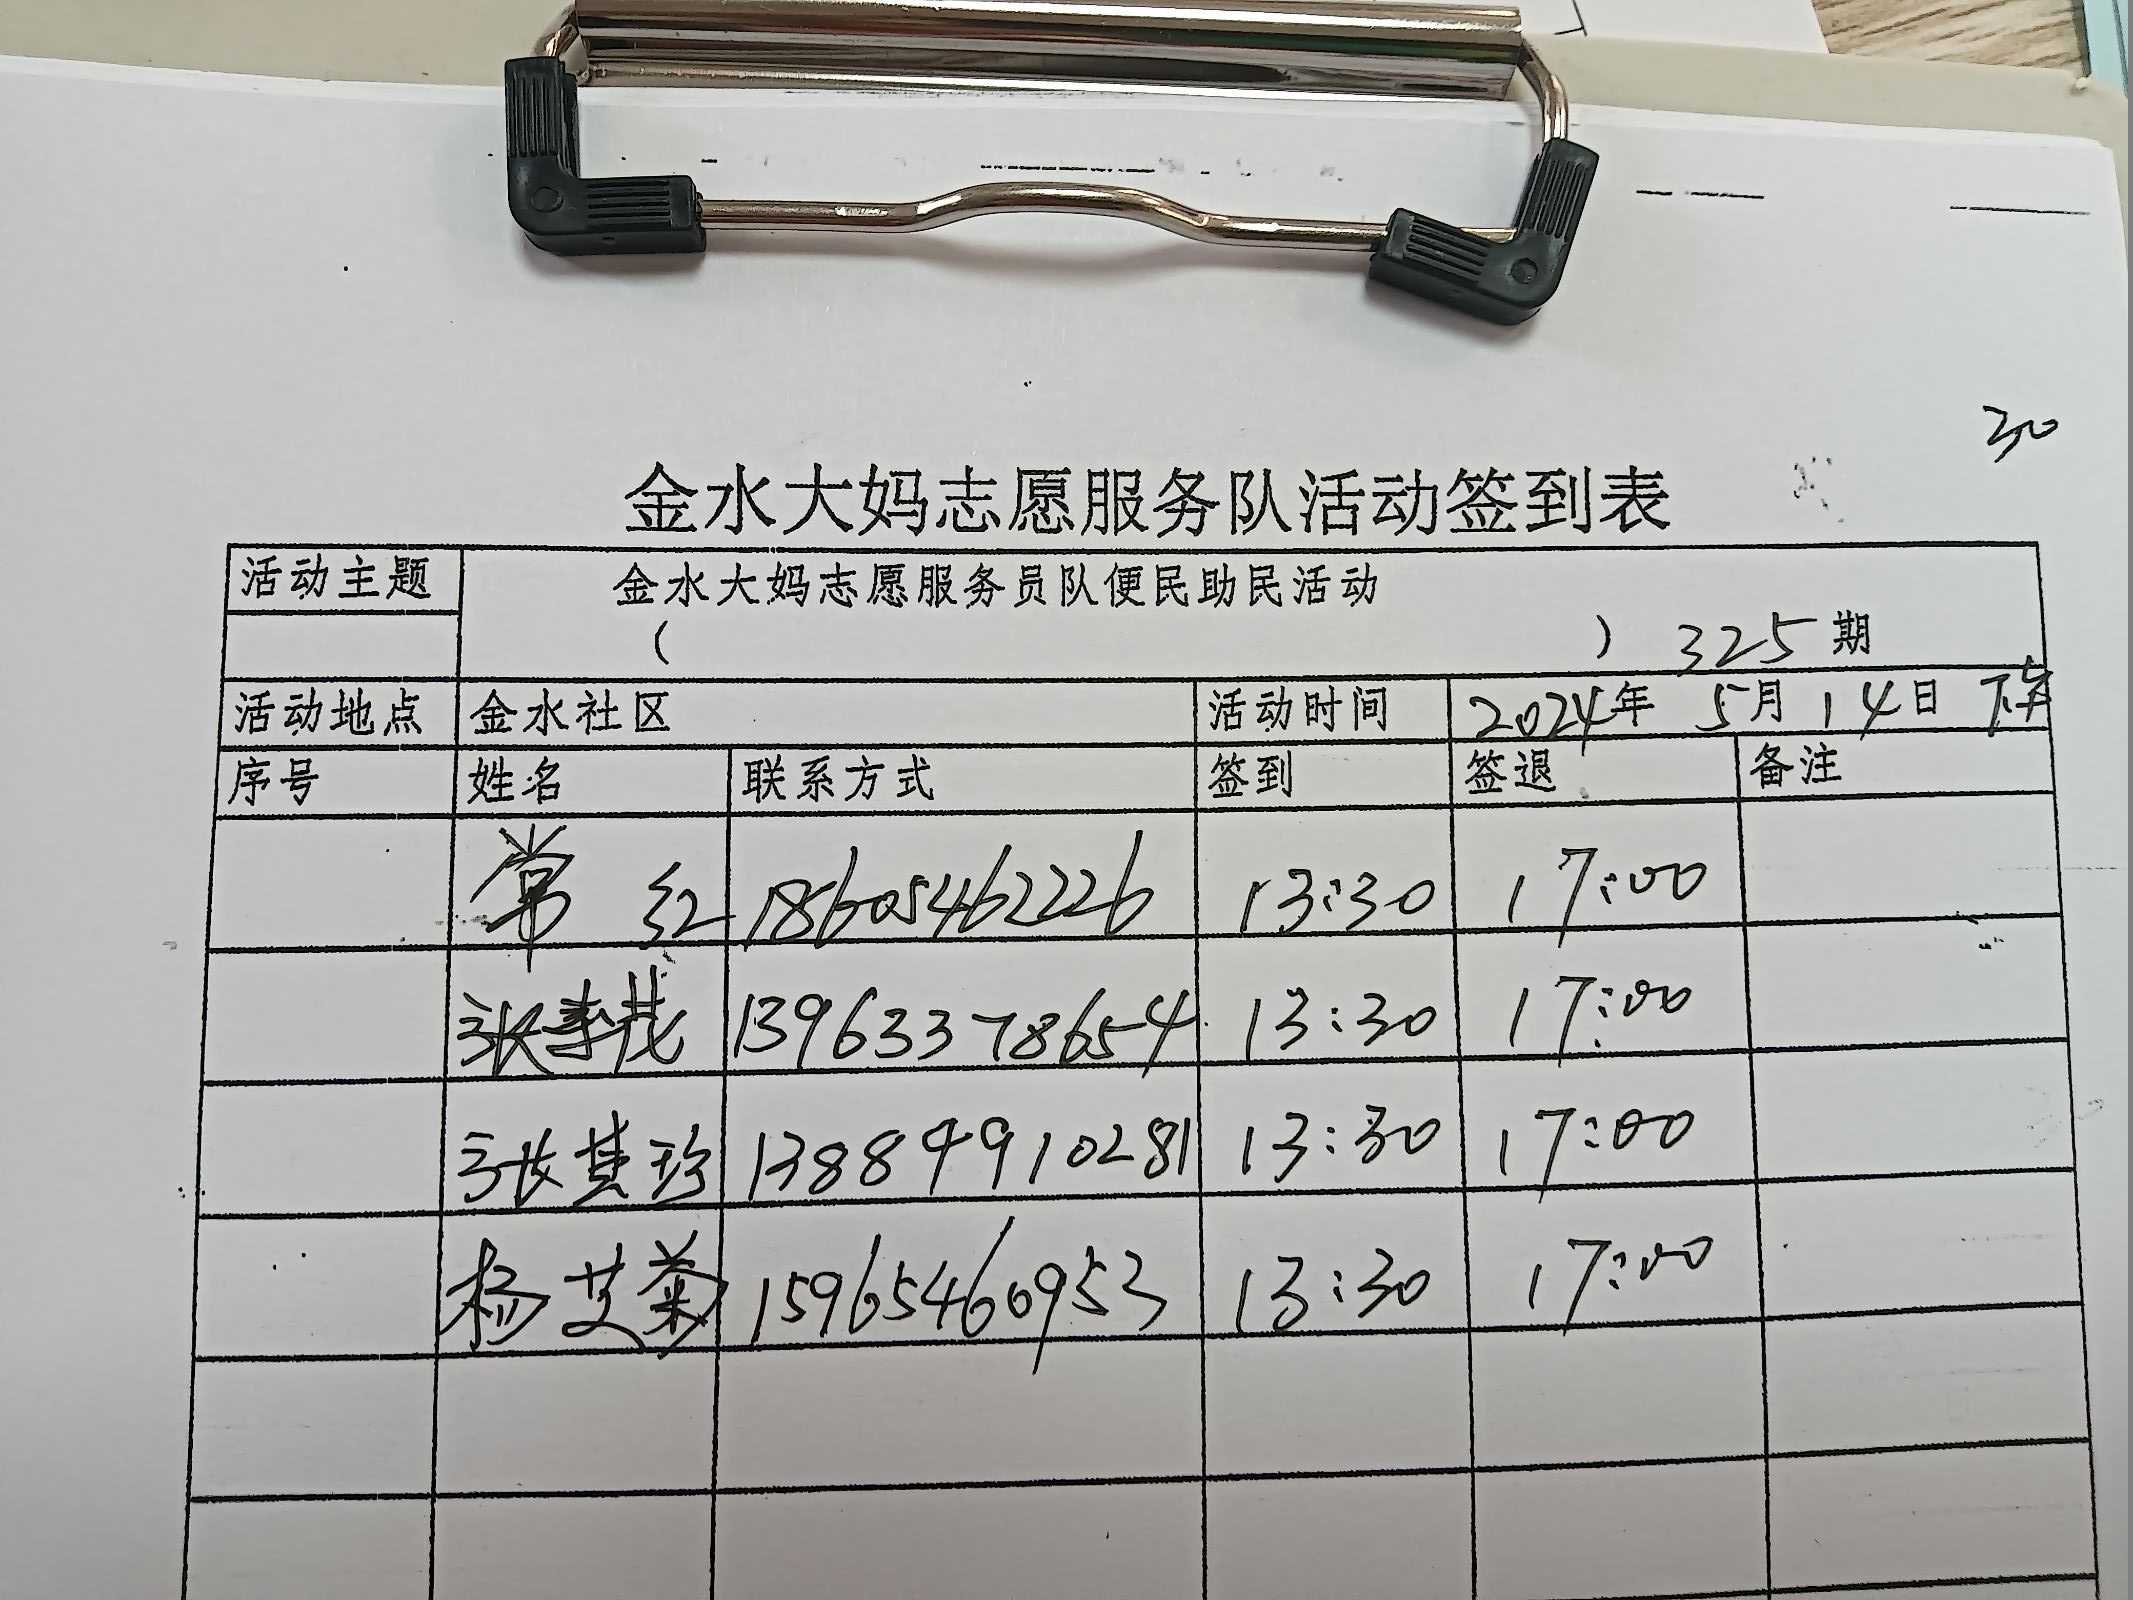 30
金水大妈志愿服务队活动签到表
活动主题 金水大妈志愿服务员队便民助民活动
( ) 325期
活动地点 金水社区 活动时间 2024年 5月 14日 下午
序号 姓名 联系方式 签到 签退 备注
常 红 18605462226 13:30 17:00
张春茂 13963378654 13:30 17:00
张其珍 13884910281 13:30 17:00
杨艾菊 15965460953 13:30 17:00